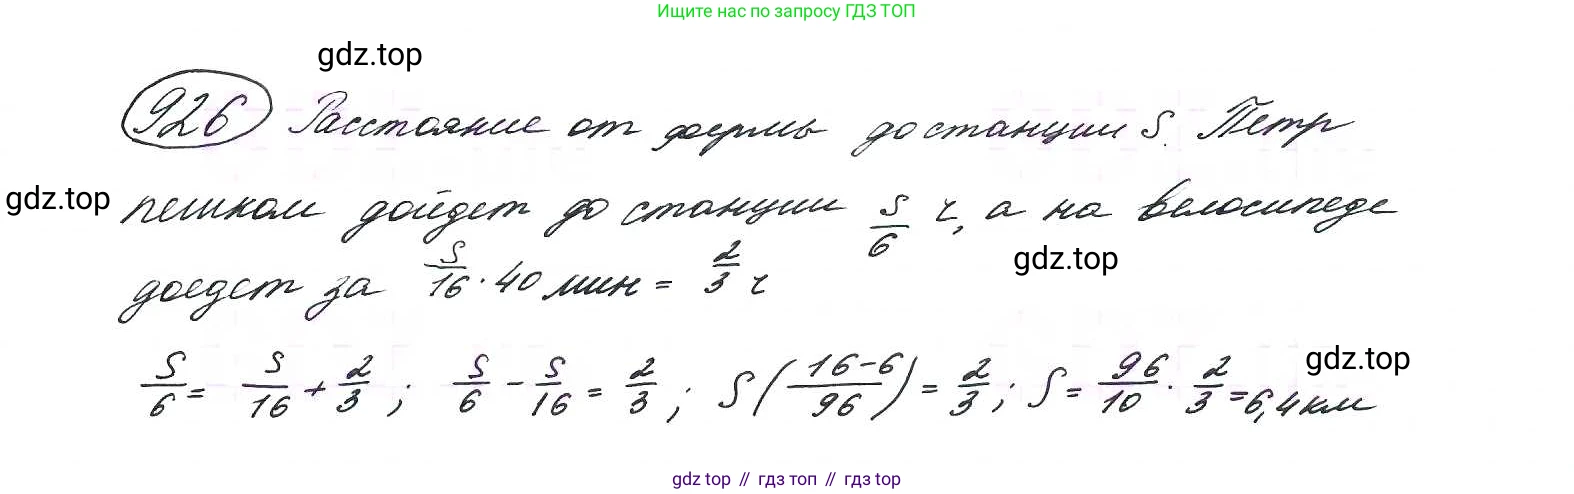 Ищите нас по запросу ГДЗ ТОП
gdz.top
926 Расстояние от фермы до станции S. Петр
gdz.top
пешком дойдет до станции S/6 ч, а на велосипеде
gdz.top
доедет за S/16 . 40 мин = 2/3 ч
gdz.top
S/6 = S/16 + 2/3 ; S/6 - S/16 = 2/3 ; S((16-6)/96) = 2/3 ; S = 96/10 · 2/3 = 6,4 км
gdz top // гдз топ // gdz top